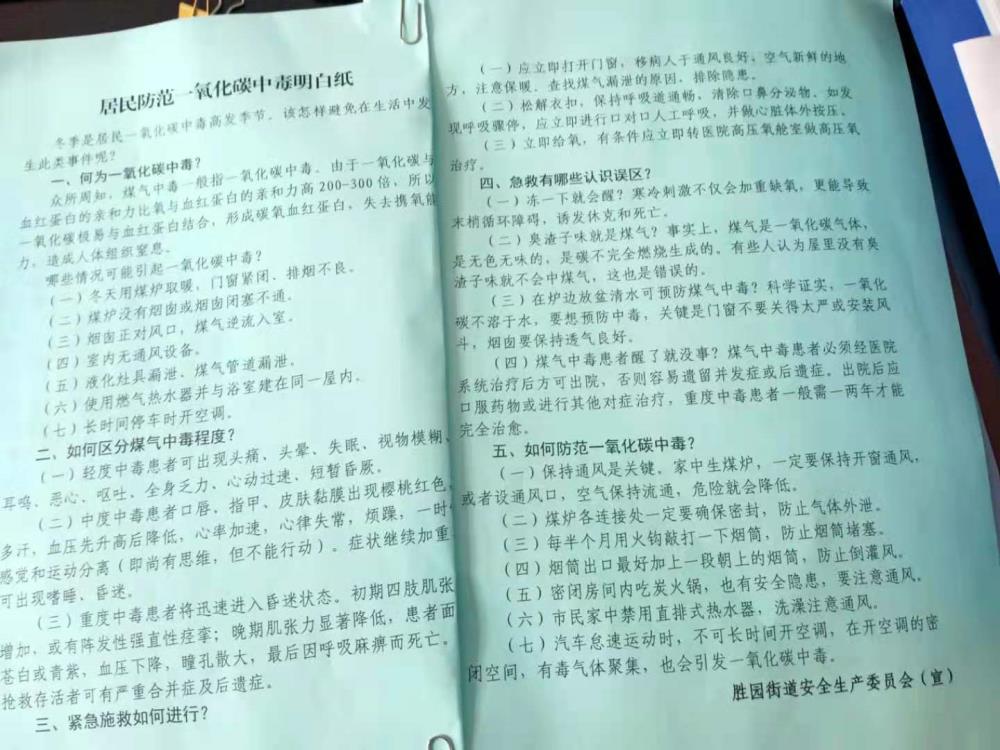 居民防范一氧化碳中毒明白纸
冬季是居民一氧化碳中毒高发季节，该怎样避免在生活中发
生此类事件呢？
一、何为一氧化碳中毒？
众所周知，煤气中毒一般指一氧化碳中毒。由于一氧化碳与
血红蛋白的亲和力比氧与血红蛋白的亲和力高200-300倍，所以
一氧化碳极易与血红蛋白结合，形成碳氧血红蛋白，失去携氧能
力，造成人体组织窒息。
哪些情况可能引起一氧化碳中毒？
（一）冬天用煤炉取暖，门窗紧闭、排烟不良。
（二）煤炉没有烟囱或烟囱闭塞不通。
（三）烟囱正对风口，煤气逆流入室。
（四）室内无通风设备。
（五）液化灶具漏泄、煤气管道漏泄。
（六）使用燃气热水器并与浴室建在同一屋内。
（七）长时间停车时开空调。
二、如何区分煤气中毒程度？
（一）轻度中毒患者可出现头痛、头晕、失眠、视物模糊、
耳鸣、恶心、呕吐、全身乏力、心动过速、短暂昏厥。
（二）中度中毒患者口唇、指甲、皮肤黏膜出现樱桃红色，
多汗，血压先升高后降低，心率加速，心律失常，烦躁，一时
感觉和运动分离（即尚有思维，但不能行动）。症状继续加重
可出现嗜睡、昏迷。
（三）重度中毒患者将迅速进入昏迷状态。初期四肢肌张
增加，或有阵发性强直性痉挛；晚期肌张力显著降低，患者面
苍白或青紫，血压下降，瞳孔散大，最后因呼吸麻痹而死亡。
抢救存活者可有严重合并症及后遗症。
三、紧急施救如何进行？
（一）应立即打开门窗，移病人于通风良好、空气新鲜的地
方，注意保暖。查找煤气漏泄的原因，排除隐患。
（二）松解衣扣，保持呼吸道通畅，清除口鼻分泌物，如发
现呼吸骤停，应立即进行口对口人工呼吸，并做心脏体外按压。
（三）立即给氧，有条件应立即转医院高压氧舱室做高压氧
治疗。
四、急救有哪些认识误区？
（一）冻一下就会醒？寒冷刺激不仅会加重缺氧，更能导致
末梢循环障碍，诱发休克和死亡。
（二）臭渣子味就是煤气？事实上，煤气是一氧化碳气体，
是无色无味的，是碳不完全燃烧生成的。有些人认为屋里没有臭
渣子味就不会中煤气，这也是错误的。
（三）在炉边放盆清水可预防煤气中毒？科学证实，一氧化
碳不溶于水，要想预防中毒，关键是门窗不要关得太严或安装风
斗，烟囱要保持透气良好。
（四）煤气中毒患者醒了就没事？煤气中毒患者必须经医院
系统治疗后方可出院，否则容易遗留并发症或后遗症。出院后应
口服药物或进行其他对症治疗，重度中毒患者一般需一两年才能
完全治愈。
五、如何防范一氧化碳中毒？
（一）保持通风是关键。家中生煤炉，一定要保持开窗通风，
或者设通风口，空气保持流通，危险就会降低。
（二）煤炉各连接处一定要确保密封，防止气体外泄。
（三）每半个月用火钩敲打一下烟筒，防止烟筒堵塞。
（四）烟筒出口最好加上一段朝上的烟筒，防止倒灌风。
（五）密闭房间内吃炭火锅，也有安全隐患，要注意通风。
（六）市民家中禁用直排式热水器，洗澡注意通风。
（七）汽车怠速运动时，不可长时间开空调，在开空调的密
闭空间，有毒气体聚集，也会引发一氧化碳中毒。
胜园街道安全生产委员会（宣）